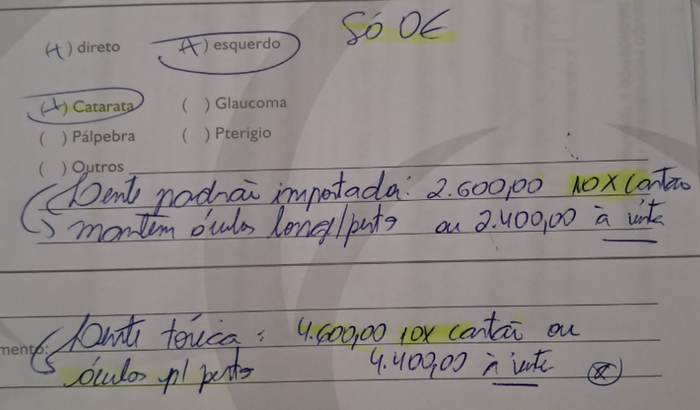 Só OE
(x) direto (x) esquerdo
(x) Catarata ( ) Glaucoma
( ) Pálpebra ( ) Pterigio
( ) Outros
Lente padrão importada: 2.600,00 10X cartão
mantém óculos longe/perto ou 2.400,00 à vista
mento:
Lente tórica: 4.600,00 10X cartão ou
óculos p/ perto 4.400,00 à vista (x)